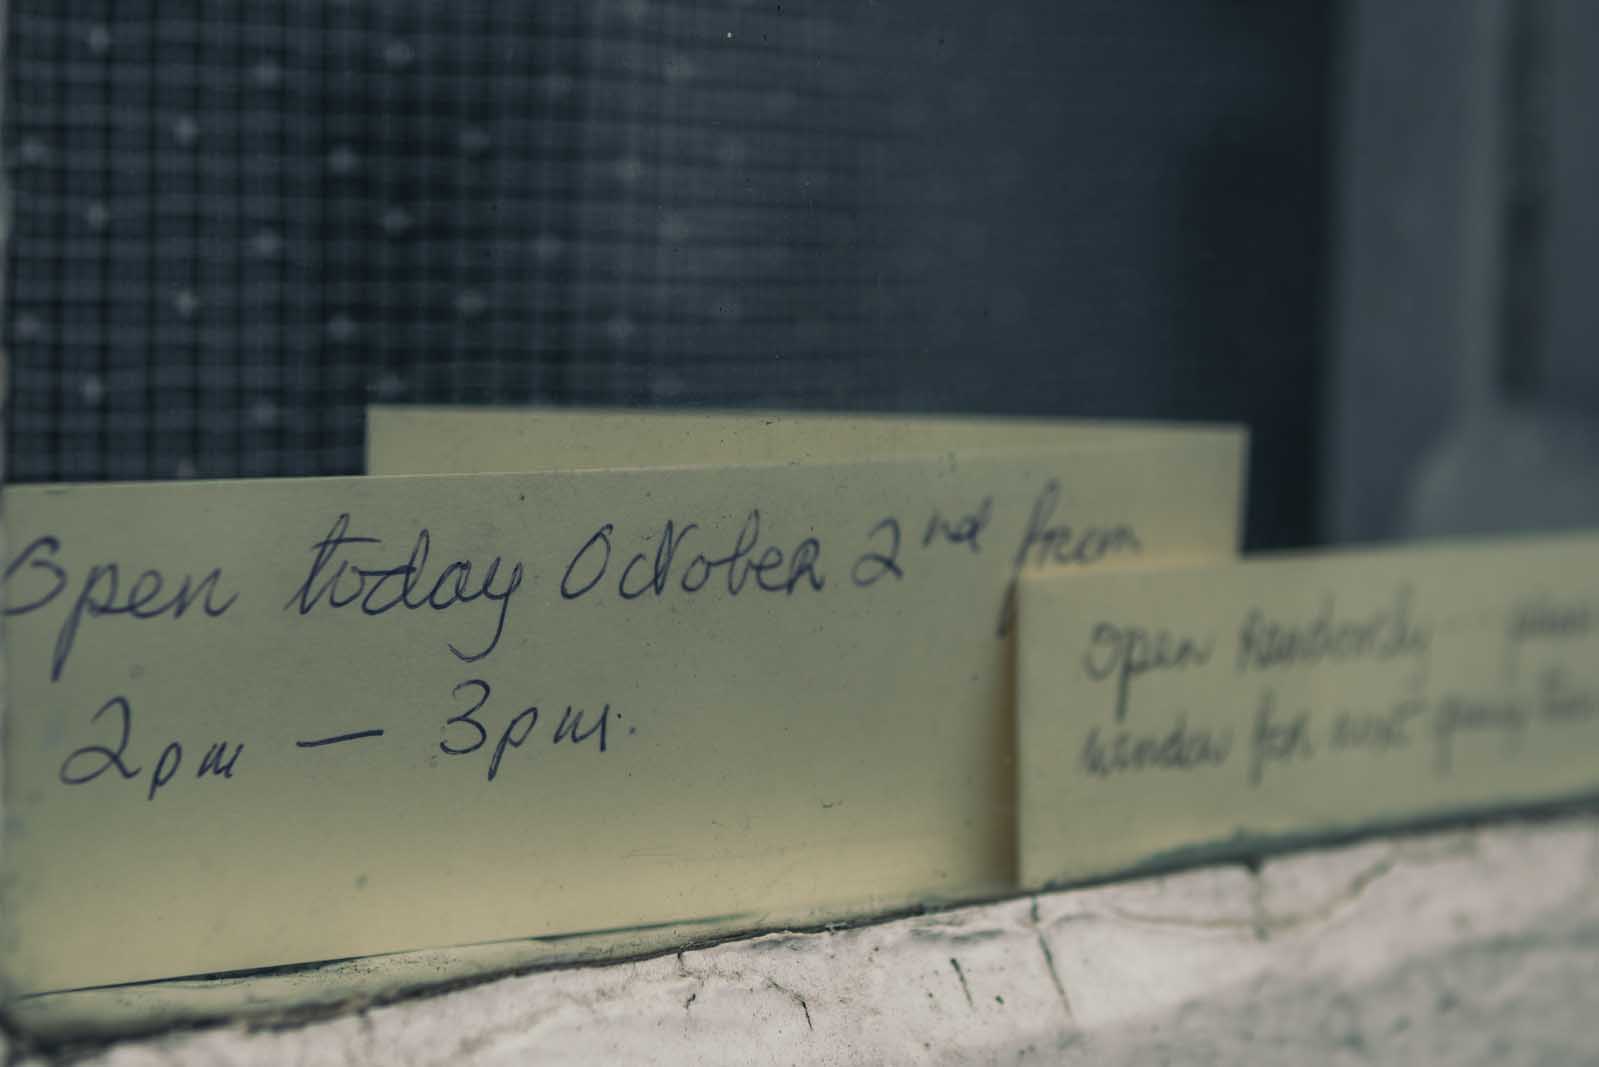 Open today October 2nd from
2pm — 3pm.
Open Randomly
window for next